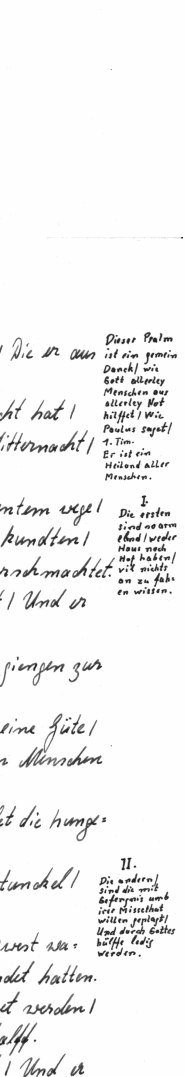 Dieser Psalm
| Die er aus
ist ein gemein
Danck/ wie
Gott allerley
Menschen aus
allerley Not
hilffet/ Wie
Paulus saget/
1. Tim.
Er ist ein
Heiland aller
Menschen.
cht hat /
itternacht /
I.
Die ersten
sind so arm
elend / weder
Haus noch
Hof haben/
vil nichts
an zu fah=
en wissen.
entem wege/
kundten/
rschmachtet.
t / Und er
giengen zur
eine Güte/
n Menschen
et die hunge=
II.
Die andern/
sind die mit
Gefengnis umb
irer Missethat
willen geplagt/
Und durch Gottes
hülffe ledig
werden.
tunckel/
west wa=
ndet hatten.
et werden/
halff.
/ Und er